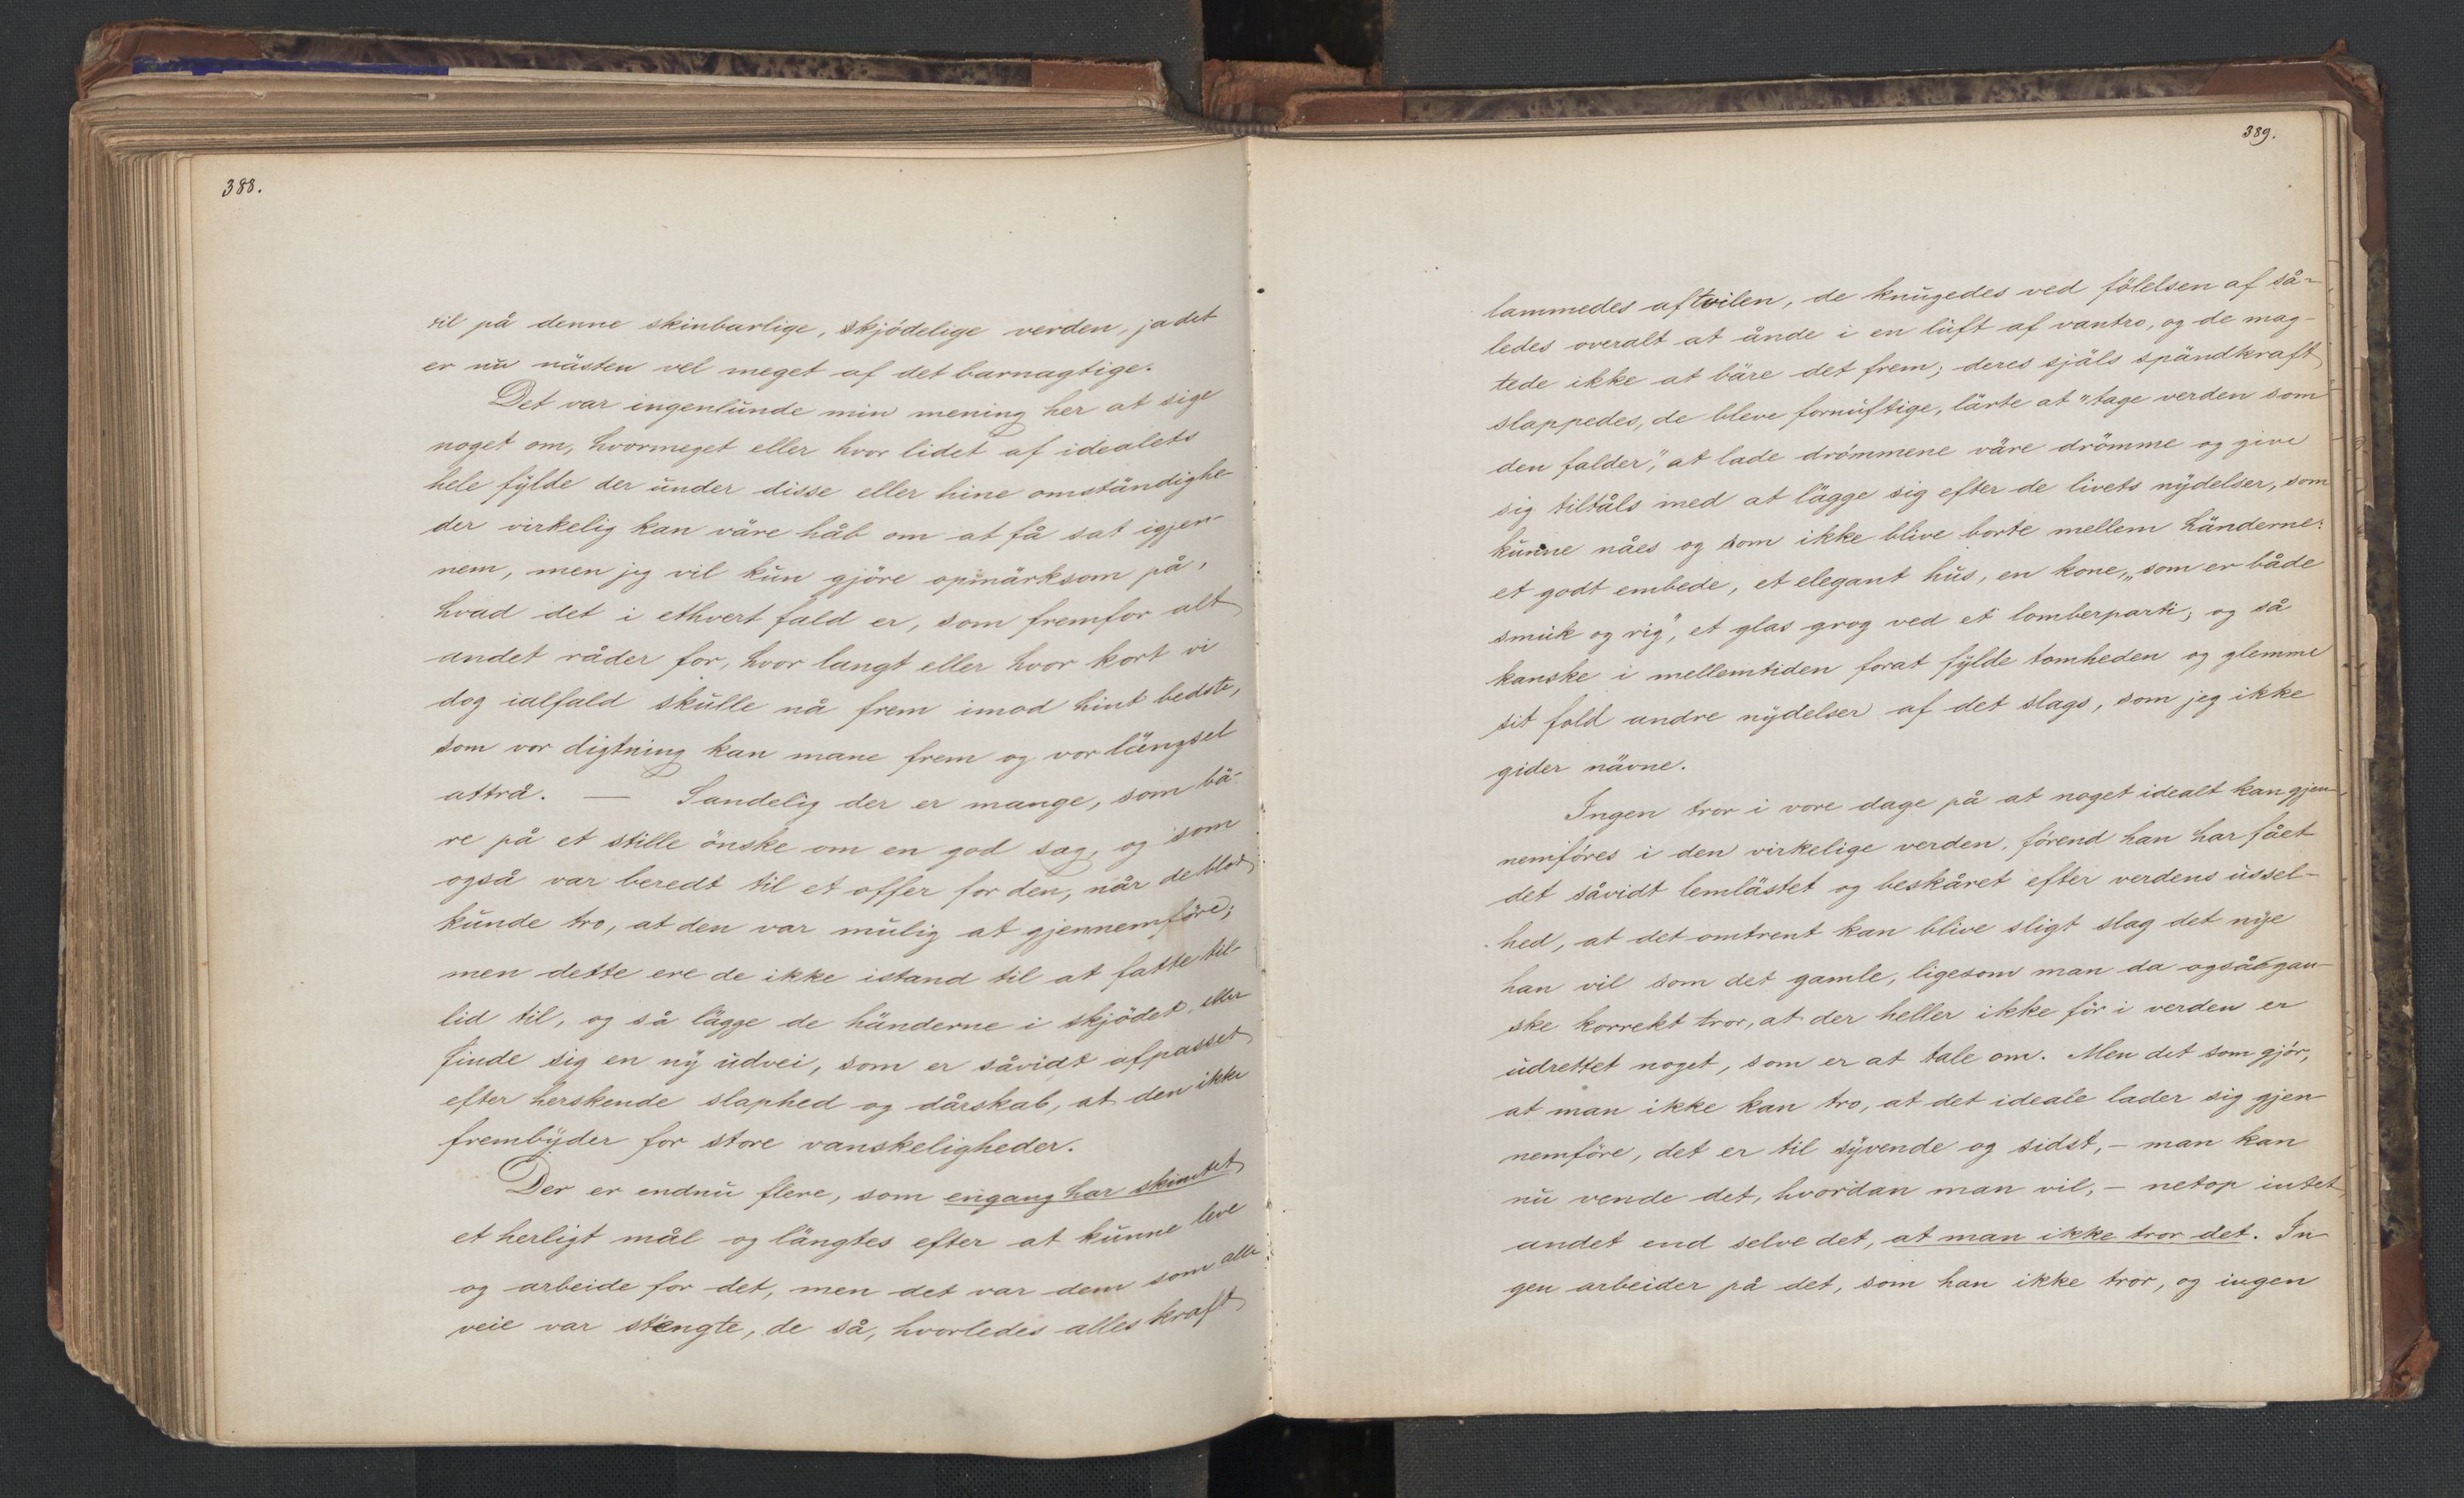 388.
til på denne skinbarlige, skjödelige verden, ja det
er nu nästen vel meget af det barnagtige.
Det var ingenlunde min mening her at sige
noget om, hvormeget eller hvor lidet af idealets
hele fylde der under disse eller hine omständighe-
der virkelig kan väre håb om at få sat igjen-
nem, men jeg vil kun gjöre opmärksom på,
hvad det i ethvert fald er, som fremfor alt
andet råder for, hvor langt eller hvor kort vi
dog ialfald skulle nå frem imod hint bedste,
som vor digtning kan mane frem og vor längsel
attrå. — Sandelig der er mange, som bä-
re på et stille önske om en god sag, og som
også var beredt til et offer for den, når de blot
kunde tro, at den var mulig at gjennemföre;
men dette ere de ikke istand til at fatte til-
lid til, og så lägge de händerne i skjödet, eller
finde sig en ny udvei, som er såvidt afpasset
efter herskende slaphed og dårskab, at den ikke
frembyder for store vanskeligheder.
Der er endnu flere, som engang har skimtet
et herligt mål og längtes efter at kunne leve
og arbeide for det, men det var dem som alle
veie var stengte, de så, hvorledes alles kraft
389.
lammedes af tvilen, de knugedes ved fölelsen af så-
ledes overalt at ånde i en luft af vantro, og de mag-
tede ikke at bäre det frem; deres själs spändkraft
slappedes, de bleve fornuftige, lärte at "tage verden som
den falder", at lade drömmene väre drömme og give
sig tiltåls med at lägge sig efter de livets nydelser, som
kunne nåes og som ikke blive borte mellem händerne:
et godt embede, et elegant hus, en kone, „som er både
smuk og rig", et glas grog ved et lomberparti; og så
kanske i mellemtiden forat fylde tomheden og glemme
sit fald andre nydelser af det slags, som jeg ikke
gider nävne.
Ingen tror i vore dage på at noget idealt kan gjen-
nemföres i den virkelige verden, förend han har fået
det såvidt lemlästet og beskåret efter verdens ussel-
hed, at det omtrent kan blive sligt slag det nye
han vil som det gamle, ligesom man da også gan-
ske korrekt tror, at der heller ikke för i verden er
udrettet noget, som er at tale om. Men det som gjör,
at man ikke kan tro, at det ideale lader sig gjen-
nemföre, det er til syvende og sidst, – man kan
nu vende det, hvordan man vil, – netop intet
andet end selve det, at man ikke tror det. In-
gen arbeider på det, som han ikke tror, og ingen